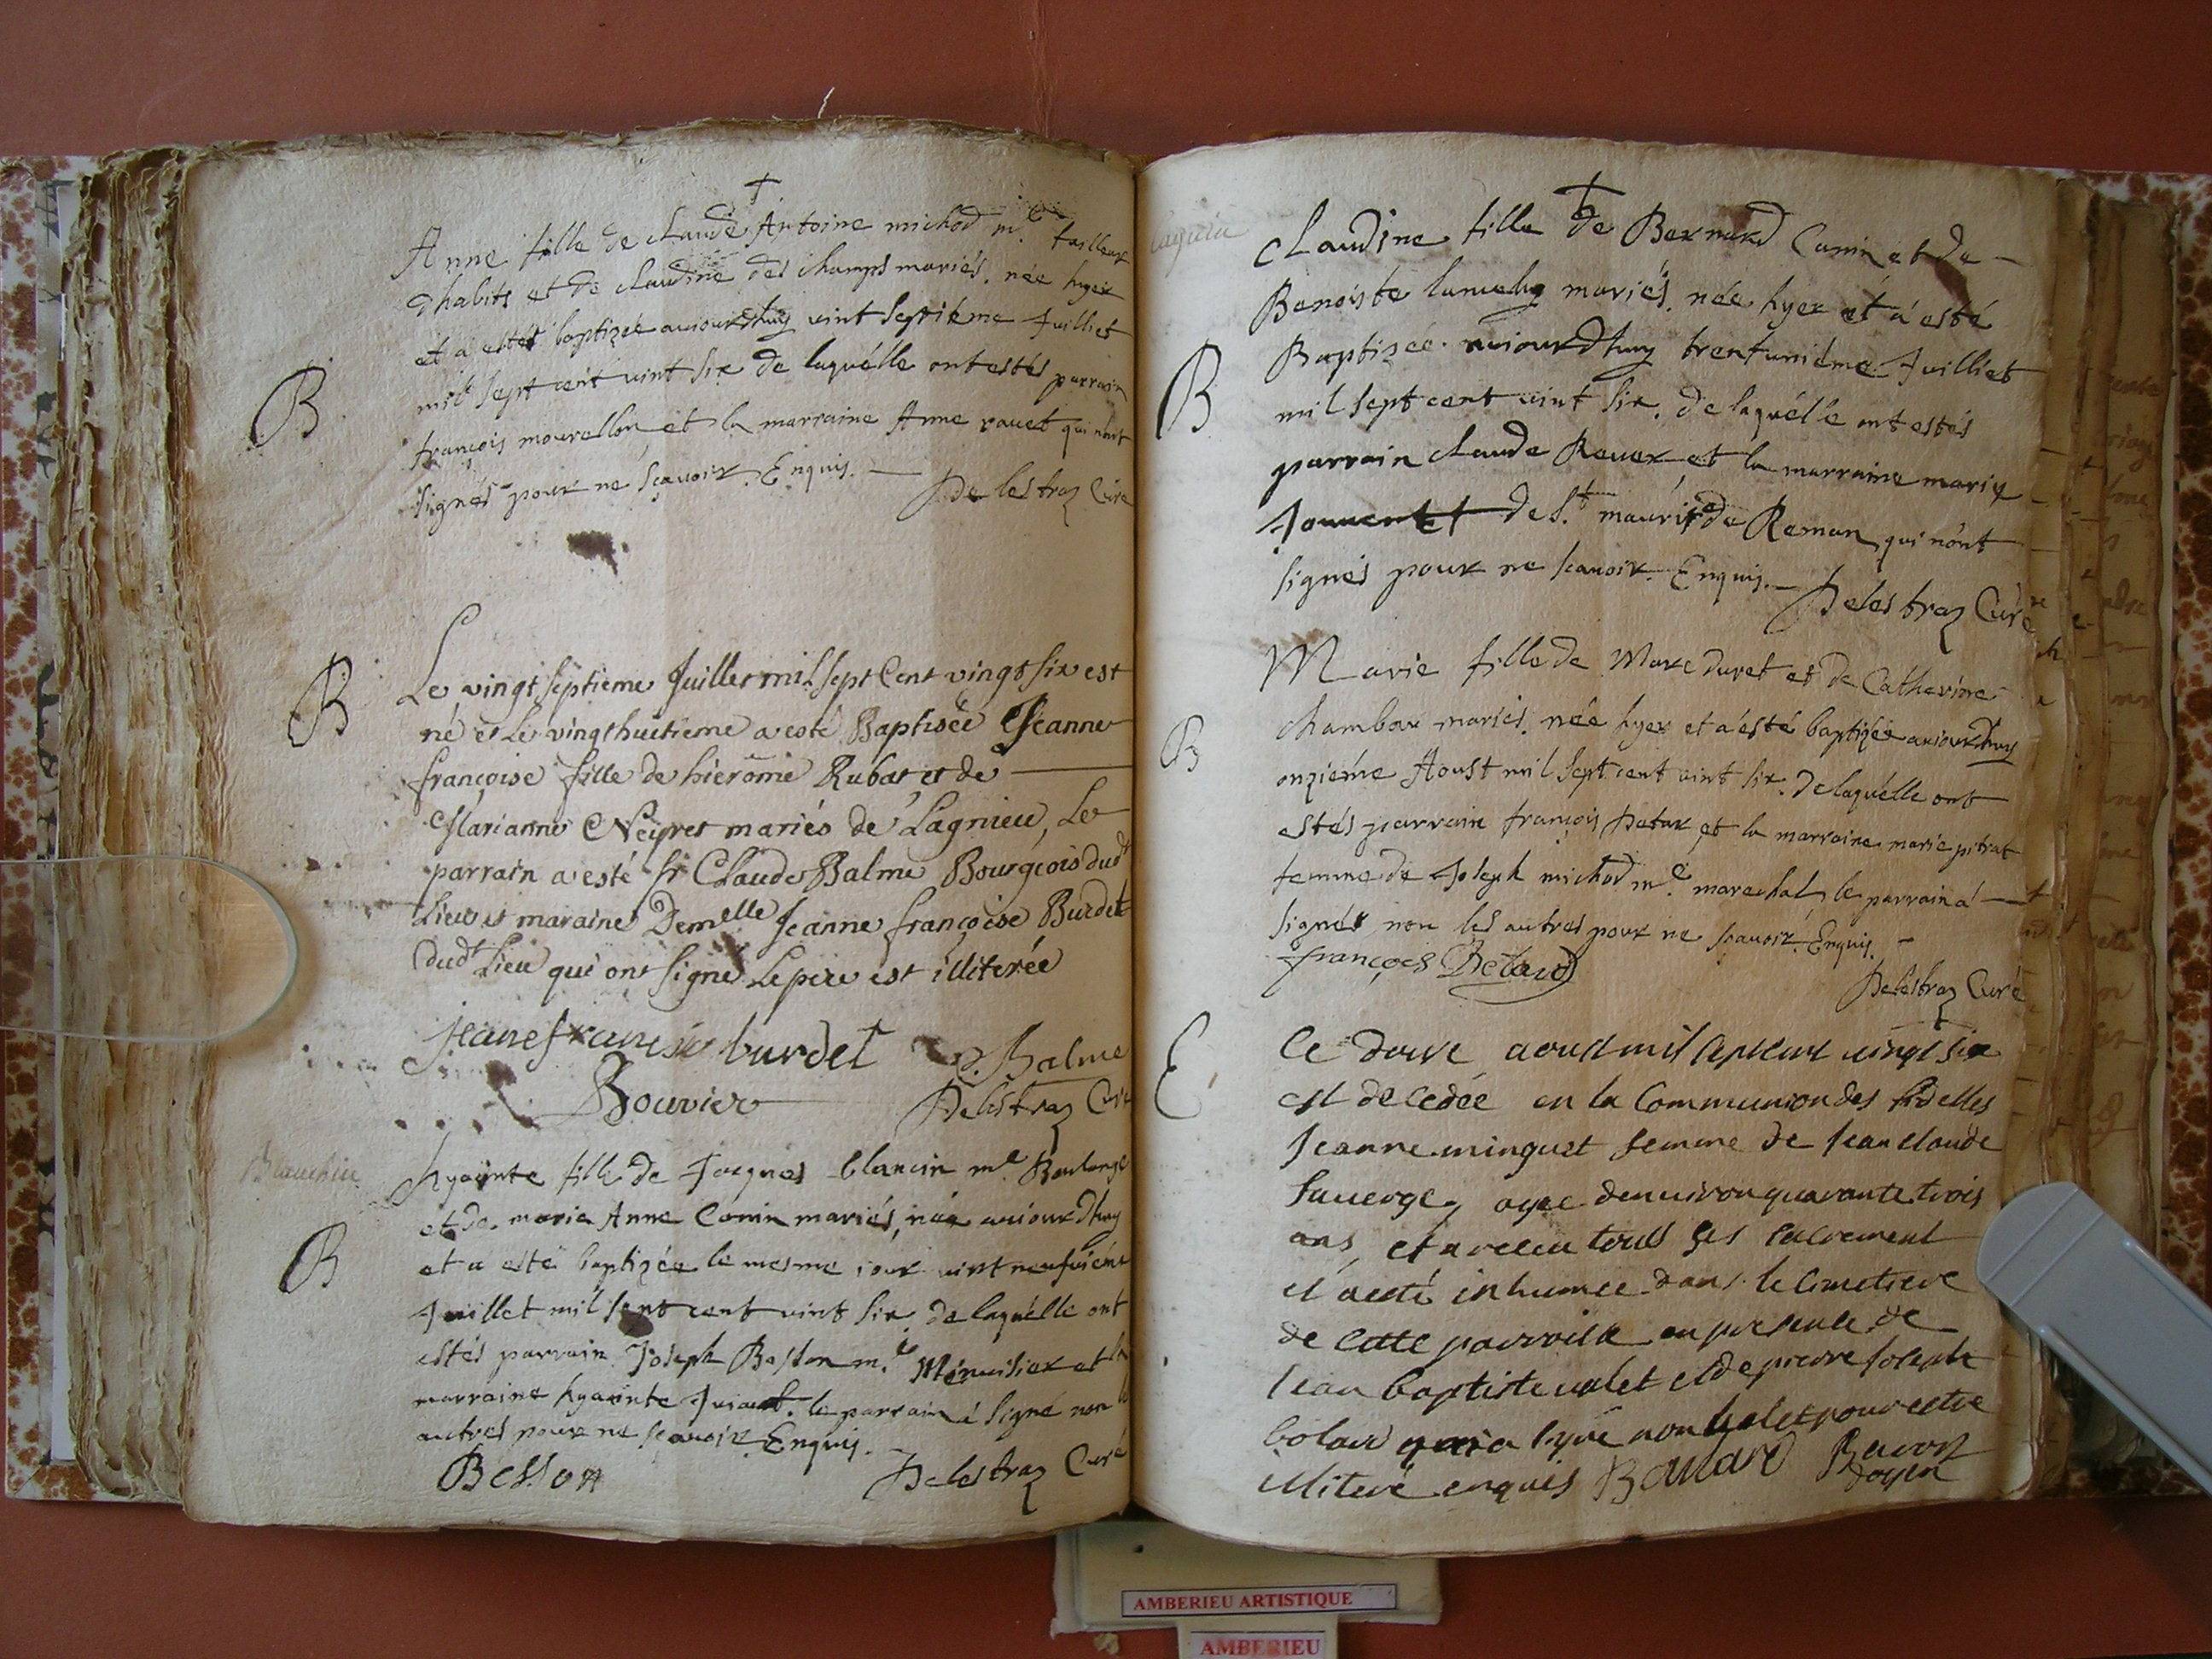 Anne fille de claude Antoine michod m.e tailleur
dhabits et de claudine des champs mariés. née hyer
et a estés baptizée auiourdhuy vint septiéme Juilliet
mil sept cent vint six de laquélle ont estés parrain
françois mourellon et la marraine Anne rauet qui n'ont
signés pour ne sçauoir. Enquis.
Delestraz Curé
B
Le vingt septieme Juillet mil sept Cent vingt six est
né et Le vingt huitieme a esté Baptisée Jeanne
françoise fille de hierôme Rubat et de
Marianne Neyret mariés de Lagnieu, Le
parrain a esté Sr Claude Balme Bourgeois dudt
Lieu et maraine Demelle Jeanne françoise Burdet
dudt Lieu qui ont signé Le pere est illiterée
B
Jeane francoise burdet
Balme
Bouvier
Delestraz Curé
hyacinte fille de Jacques blancin m.e Boulanger
et de marie Anne Conin mariés, née auiourdhuy
et a esté baptizée le mesme iour vint neufuiéme
Juillet mil sept cent vint six, de laquélle ont
estés parrain Joseph Besson m.e Menuisier et la
marraine hyacinte Juiaut. le parrain á signé non
autres pour ne scauoir Enquis.
B
Besson
Delestraz Curé
claudine fille de Bernard Cunin et de
Benoiste lumelly mariés. née hyer et á esté
Baptizée auiourdhuy trentuniéme Juilliet
mil sept cent vint six. de laquélle ont estés
parrain claude Reuer et la marraine marie
de S.t mauris de Reman qui n'ont
signés pour ne scauoir. Enquis.
Delestraz Curé
B
Marie fille de Marc duret et de Catherine
chambar mariés. née hyer et a'esté baptizée auiourdhuy
onziéme Aoust mil sept cent vint six. de laquélle ont
estés parrain françois Detar et la marraine marie pitrat
femme de Joseph michod m.e marechal, le parrain á
signér non les autres pour ne scauoir. Enquis.
B
françois Detard
Delestraz Curé
Ce douze aoust mil sept cent vingt six
est decedée en la Communion des fidelles
Jeanne minguet femme de Jean claude
Sauerge, agee denuiron quarante trois
ans, et a receu touts ses sacrement
et a esté inhumee dans le Cimetiere
de cette parroisse en presence de
Jean baptiste valet et de pierre Joseph
bolard qui a signé non valet pour estre
illiteré enquis
E
Bolard
Ravoz
doyen
AMBERIEU ARTISTIQUE
AMBERIEU